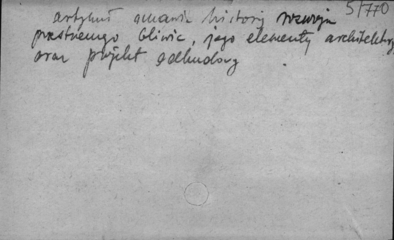 5/770
artykuł omawia historię rozwoju
przestrzennego Gliwic, jego elementy architektury
oraz projekt odbudowy